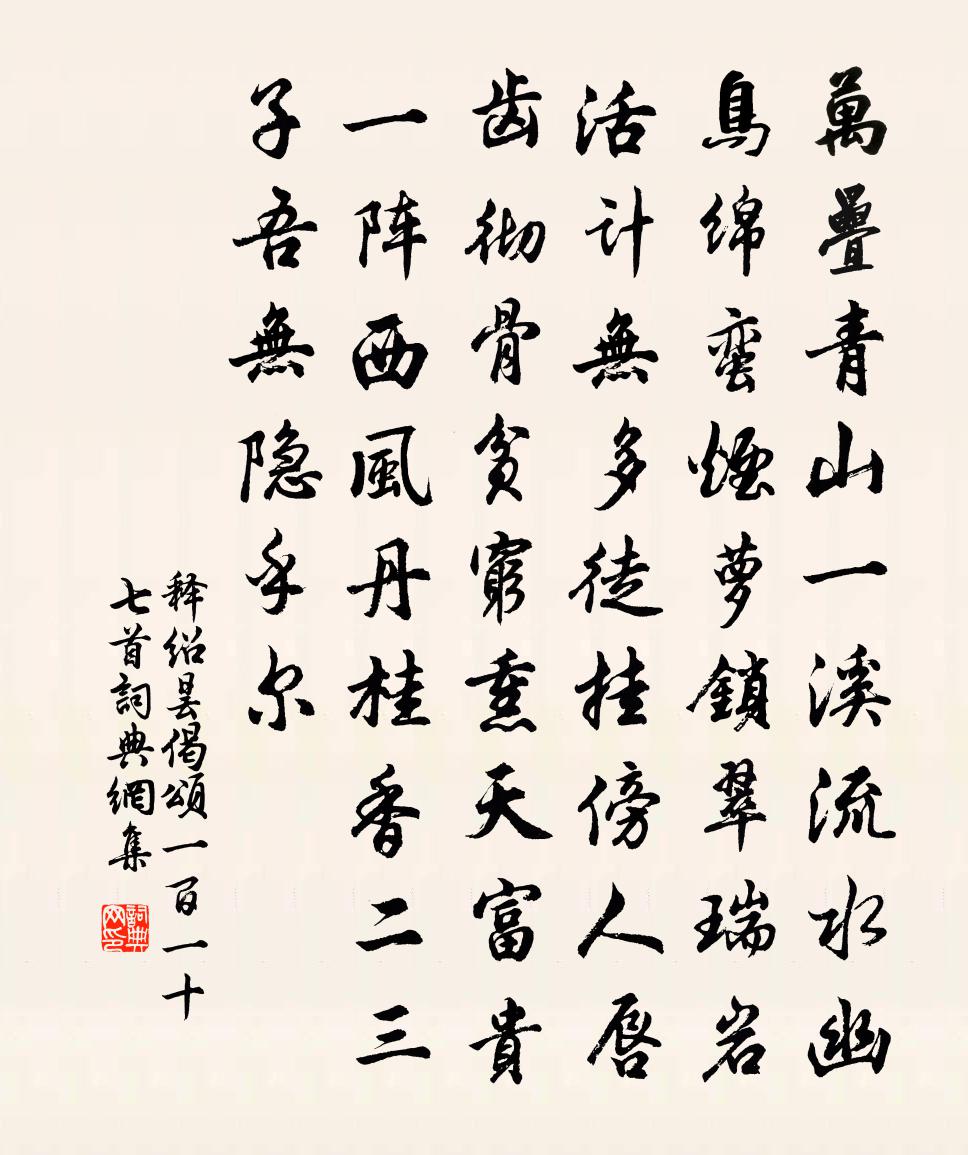 萬疊青山一溪流水幽
鳥綿蛮煙萝鎖翠瑞岩
活计無多徒挂傍人唇
齿彻骨貧窮熏天富貴
一阵西風丹桂香二三
子吾無隐乎尔
释绍昙偈頌一百一十
七首詞典網集
詞典网印